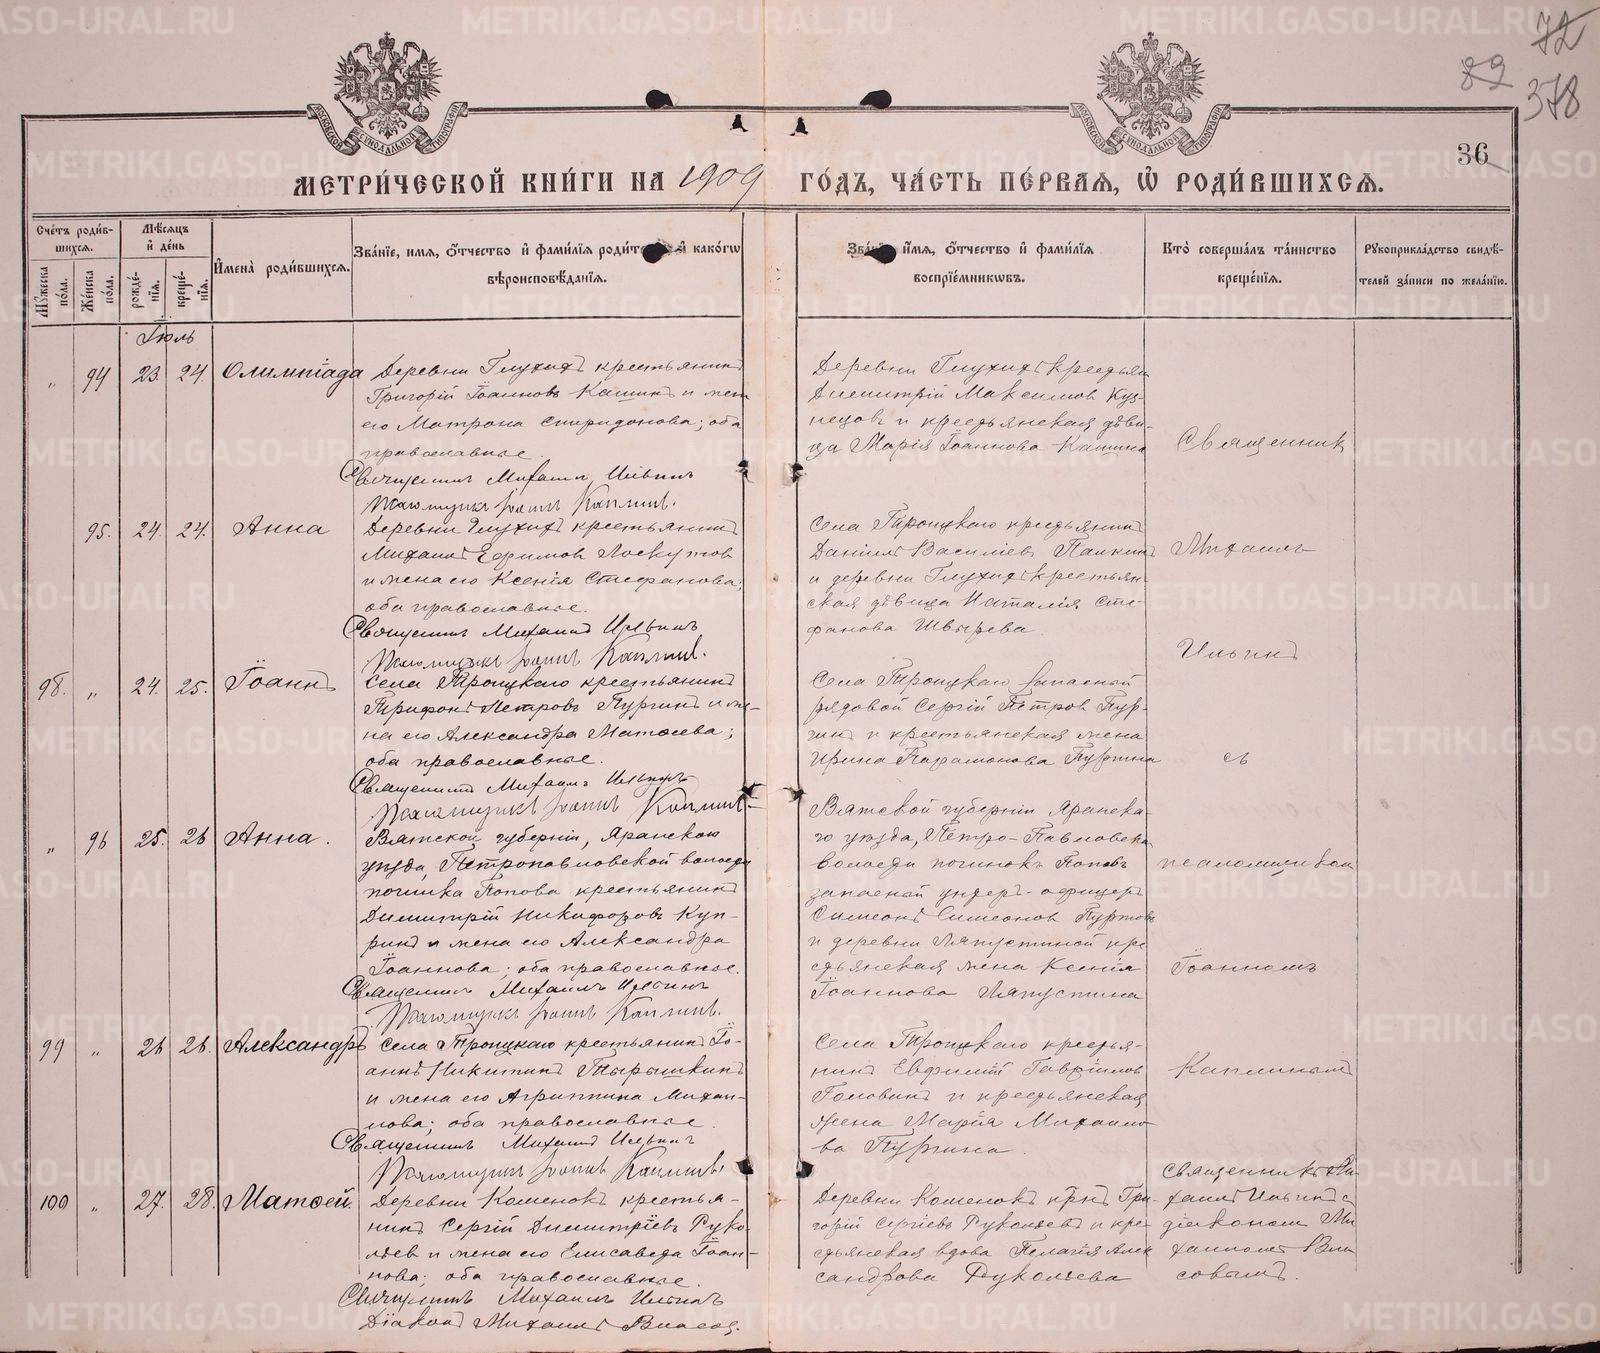 72
82
378
36
МЕТРИ́ЧЕСКОЙ КНИ́ГИ НА 1909 ГО́ДЪ, ЧА́СТЬ ПЕ́РВАЯ, Ѡ РОДИ́ВШИХСЯ.
Сче́тъ роди́вшихся.
Мꙋжеска по́ла.
Же́нска по́ла.
Мѣ́сяцъ и́ де́нь
рожде́нїя.
креще́нїя.
И҆мена̀ роди́вшихся.
Зва́нїе, имя, ѻ҆тчество и҆ фами́лїя роди́телей и҆ како́гѡ вѣроисповѣ́данїя.
Зва́нїе, и҆мя, ѻ҆тчество и҆ фами́лїя воспрїе́мникѡвъ.
Кто̀ соверша́лъ та́инство креще́нїя.
Рꙋкоприкла́дство свидѣ́телей за́писи по жела́нїю.
Іюль
„ 94 23. 24. Олимпіада
Деревни Глухихъ крестьянинъ
Григорій Іоанновъ Кашинъ и жена
его Матрона Спиридонова; оба
православные.
Священникъ Михаилъ Ильинъ
Псаломщикъ Іоаннъ Каплинъ.
Деревни Глухихъ крестьян
Димитрій Максимов Куз-
нецов и крестьянская дѣви-
ца Марія Іоаннова Кашина
Священник
95. 24. 24. Анна
Деревни Глухихъ крестьянинъ
Михаилъ Ефимов Лоскутов
и жена его Ксенія Стефанова;
оба православные.
Священникъ Михаилъ Ильинъ
Псаломщикъ Іоаннъ Каплинъ.
Села Троицкаго крестьянинъ
Даніилъ Василіевъ Панкинъ
и деревни Глухихъ крестьян-
ская дѣвица Наталія Сте-
фанова Швырева
Михаилъ
Ильинъ
98. „ 24. 25. Іоаннъ
Села Троицкаго крестьянинъ
Трифонъ Петровъ Пургинъ и же-
на его Александра Матѳеева;
оба православные.
Священникъ Михаилъ Ильинъ
Псаломщикъ Іоаннъ Каплинъ
Села Троицкаго запасный
рядовой Сергій Петров Пур-
гинъ и крестьянская жена
Ирина Парамонова Пургина
съ
„ 96 25. 26 Анна.
Вятской губерніи, Яранскаго
уѣзда, Петропавловской волости
починка Попова крестьянинъ
Димитрій Никифоровъ Куп-
ринъ и жена его Александра
Іоаннова; оба православные.
Священникъ Михаилъ Ильинъ
Псаломщикъ Іоаннъ Каплинъ.
Вятской губерніи Яранска-
го уѣзда, Петро-Павловской
волости починокъ Поповъ
запасной ундеръ-офицеръ
Симеонъ Симеонов
и деревни Ляпустиной кре
стьянская жена Ксенія
Іоаннова Ляпустина
псаломщиком
Іоанномъ
99 „ 26 26. Александръ
Села Троицкаго крестьянинъ Іо-
аннъ Никитинъ Тырышкинъ
и жена его Агриппина Михаи-
лова; оба православные.
Священникъ Михаилъ Ильинъ
Псаломщикъ Іоаннъ Каплинъ.
Села Троицкаго крестья-
нинъ Евфимій Гавріилов
Головинъ и крестьянская
жена Марія Михаило-
ва Пургина.
Каплинымъ
100 „ 27. 28. Матѳей.
Деревни Коменокъ крестья-
нинъ Сергій Димитріевъ Руко-
лѣев и жена его Елисавета Іоан-
нова; оба православные.
Священникъ Михаилъ Ильинъ
Діаконъ Михаилъ Власов.
Деревни Коменокъ крнъ Гри-
горій Сергіевъ Руколѣевъ и кре-
стьянская вдова Пелагія Алек
сандрова Руколѣева
Священникъ Ми-
хаилъ Ильинъ с
діакономъ Ми
хаиломъ Вла
совымъ.
METRIKI.GASO-URAL.RU